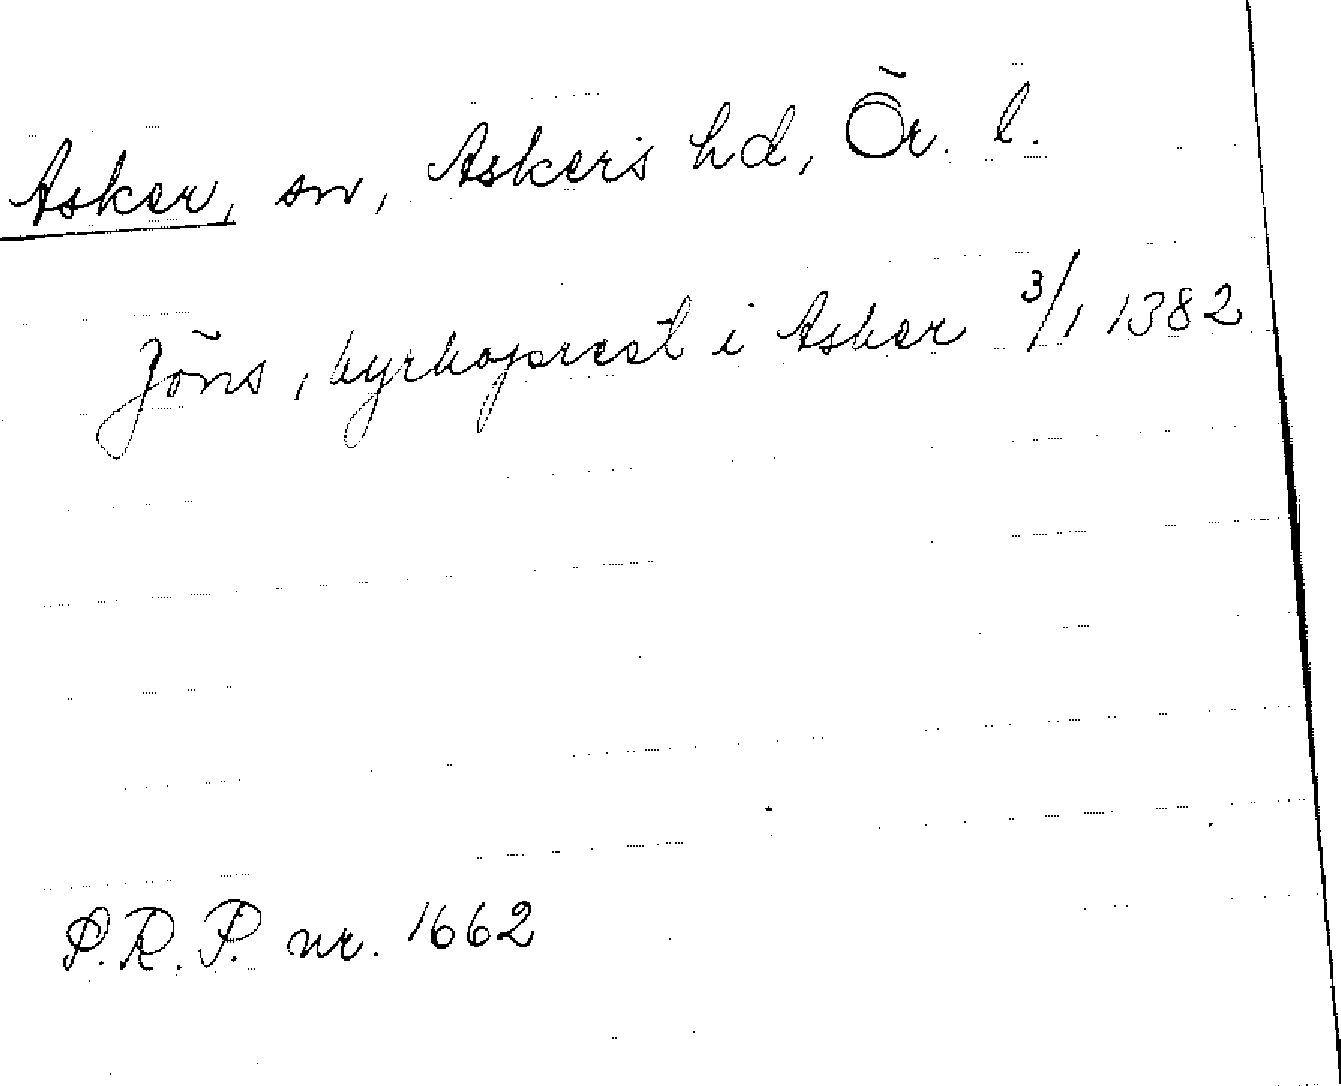 Asker, sn, Askers hd, Ör. l.
Jöns, kyrkoprest i Asker 3/1 1382
S.R.P. nr. 1662